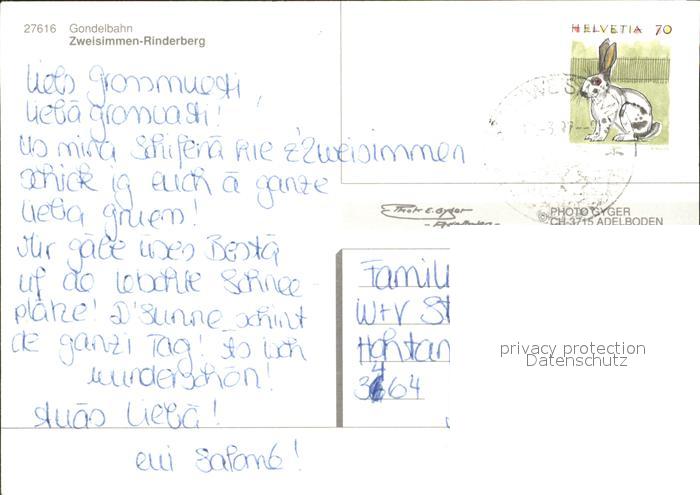 27616 Gondelbahn
Zweisimmen-Rinderberg
HELVETIA 70
Liebs Grossmueti,
Liebä Grossvati!
Us minä Schiferiä hie z'Zweisimmen
schick ig euch ä ganze
lieba gruess!
Mir gäbe üses Bestä
uf de Schnee-
plätze! D'Sunne schint
de ganzi Tag! Es isch
wunderschön!
Alläs Liebä!
eui Salomé!
PHOTO GYGER
CH-3715 ADELBODEN
Famili
W+V St
3464
privacy protection
Datenschutz